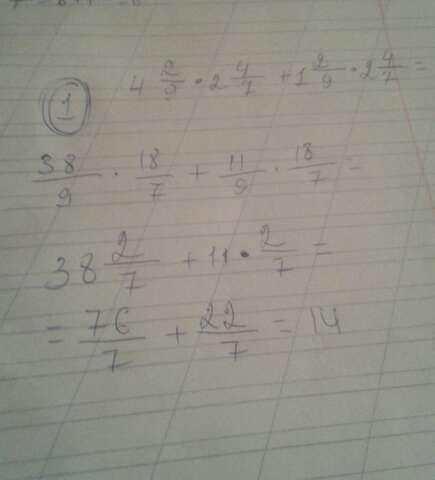 1
4 2/9 • 2 4/7 + 1 2/9 • 2 4/7 =
38/9 · 18/7 + 11/9 · 18/7 =
38 2/7 + 11 • 2/7 =
= 76/7 + 22/7 = 14